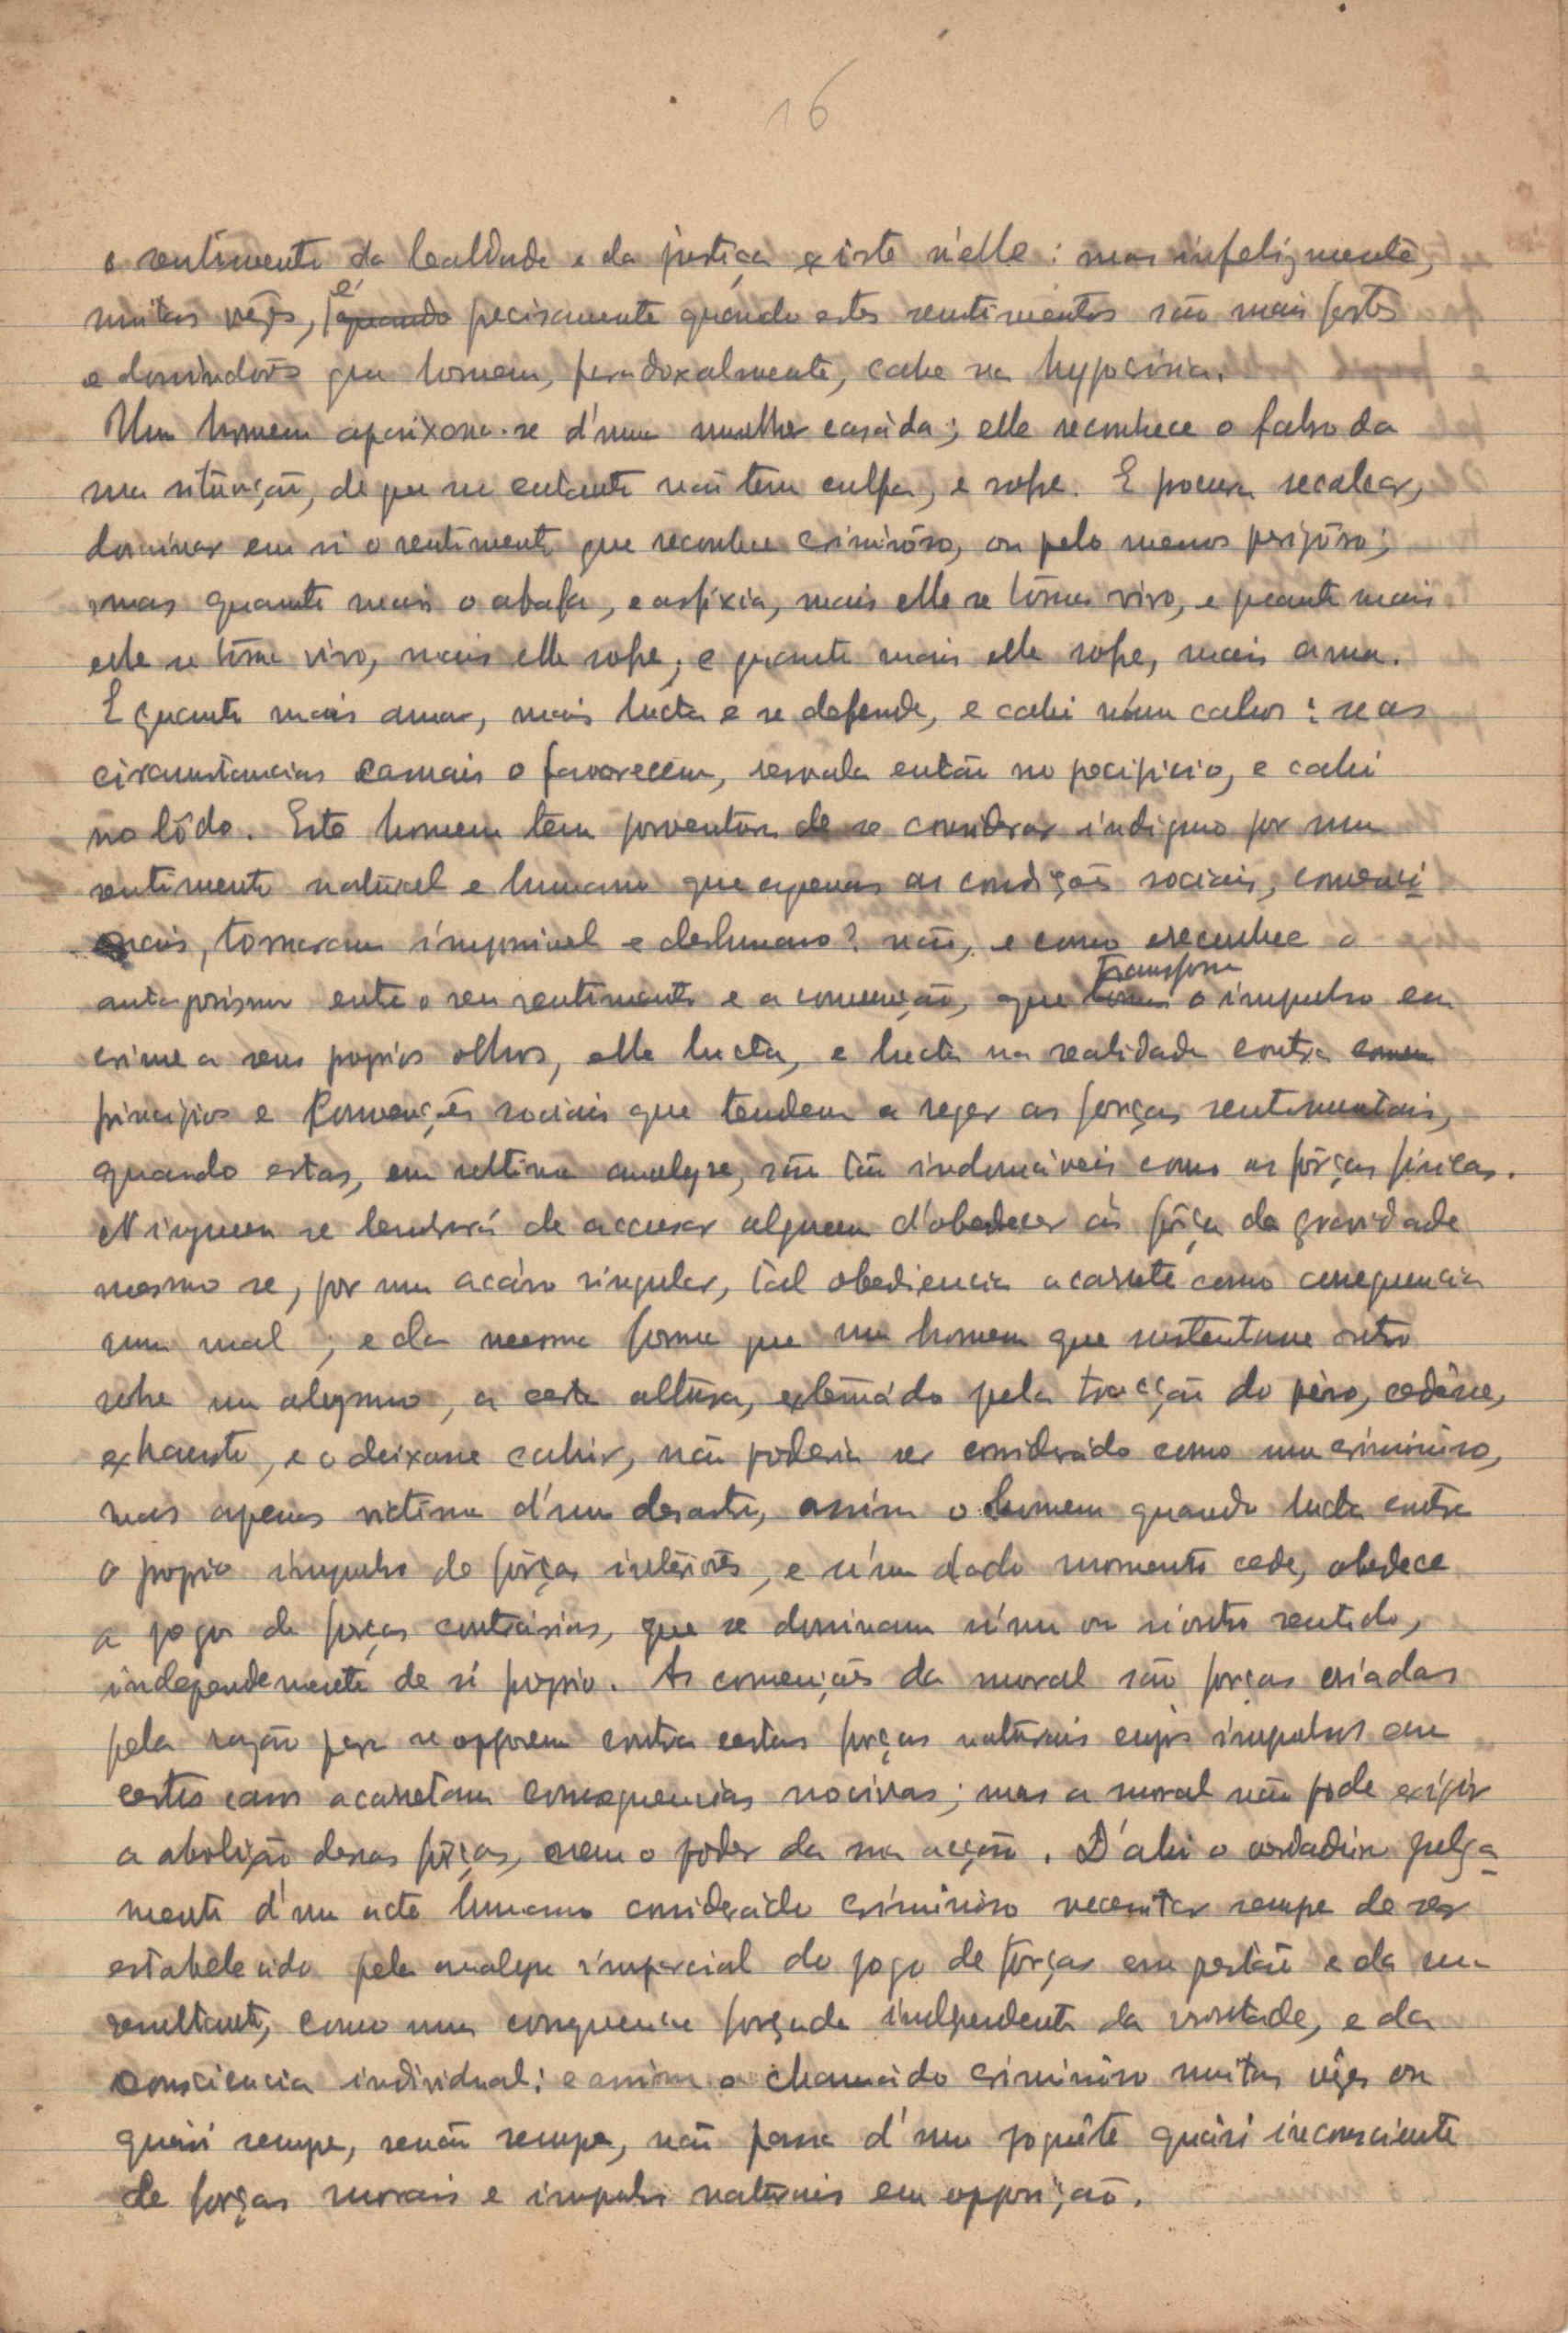 16
o sentimento da lealdade e da justiça existe n'elle: mas infelizmente,
muitas vezes, é quando precisamente quando estes sentimentos são mais fortes
e dominadores que homem, paradoxalmente, cahe na hypocrisia.
Um homem apaixona-se d'uma mulher casáda; elle reconhece o falso da
sua situação, de que no entanto não tem culpa, e sofre. E procura recalcar,
dominar em si o sentimento que reconhece criminôso, ou pelo menos perigôso;
mas quanto mais o abafa, e asfixia, mais elle se tórna vivo, e quanto mais
elle se tórna vivo, mais elle sofre, e quanto mais elle sofre, mais ama.
E quanto mais ama, mais lucta e se defende, e cahi n'um cahos: se as
circumstancias o favorecem, resvala então no precipicio, e cahi
no lôdo. Este homem tem porventura de se considerar indigno por um
sentimento natural e humano que apenas as condições sociais, convenci
onais, tornaram impossivel e deshumano? não, e como reconhece o
transforma
antagonismo entre o seu sentimento e a convenção, que torna o impulso em
crime a seus proprios olhos, elle lucta, e lucta na realidade contra
principios e convenções sociais que tendem a reger as forças sentimentais,
quando estas, em ultima analyse, são tão indomáveis como as fôrças físicas.
Ninguem se lembrará de accusar alguem d'obedecer ás fôrça da gravidade
mesmo se, por um acáso singular, tal obediencia acarrete como consequencia
um mal; e da mesma forma que um homem que sustentasse outro
sobre um abysmo, a certa altura, extenuádo pela tracção do pêso, cedêsse,
exhausto, e o deixasse cahir, não poderia ser considerado como um criminôso,
mas apenas victima d'um desastre, assim o homem quando lucta contra
o proprio impulso de fôrças interiores, e n'um dado momento cede, obedece
a jogo de forças contrárias, que se dominam n'um ou n'outro sentido,
independemente de si proprio. As convenções da moral são forças criadas
pela razão para se opporem contra certas forças naturais cujos impulsos em
certos casos acarretam consequencias nocivas; mas a moral não pode exigir
a abolição dessas fôrças, nem o poder da sua acção. D'ahi o verdadeiro julga
mento d'um acto humano considerado criminôso necessitar sempre de ser
estabelecido pela analyse imparcial do jogo de forças em questão e da sua
resultante, como uma consquencia forçada indpendente da vontade, e da
consciencia individual: e assim o chamádo criminôso muitas vêzes ou
quási sempre, senão sempre, não passa d'um joguête quási inconsciente
de forças morais e impulsos naturais em opposição.